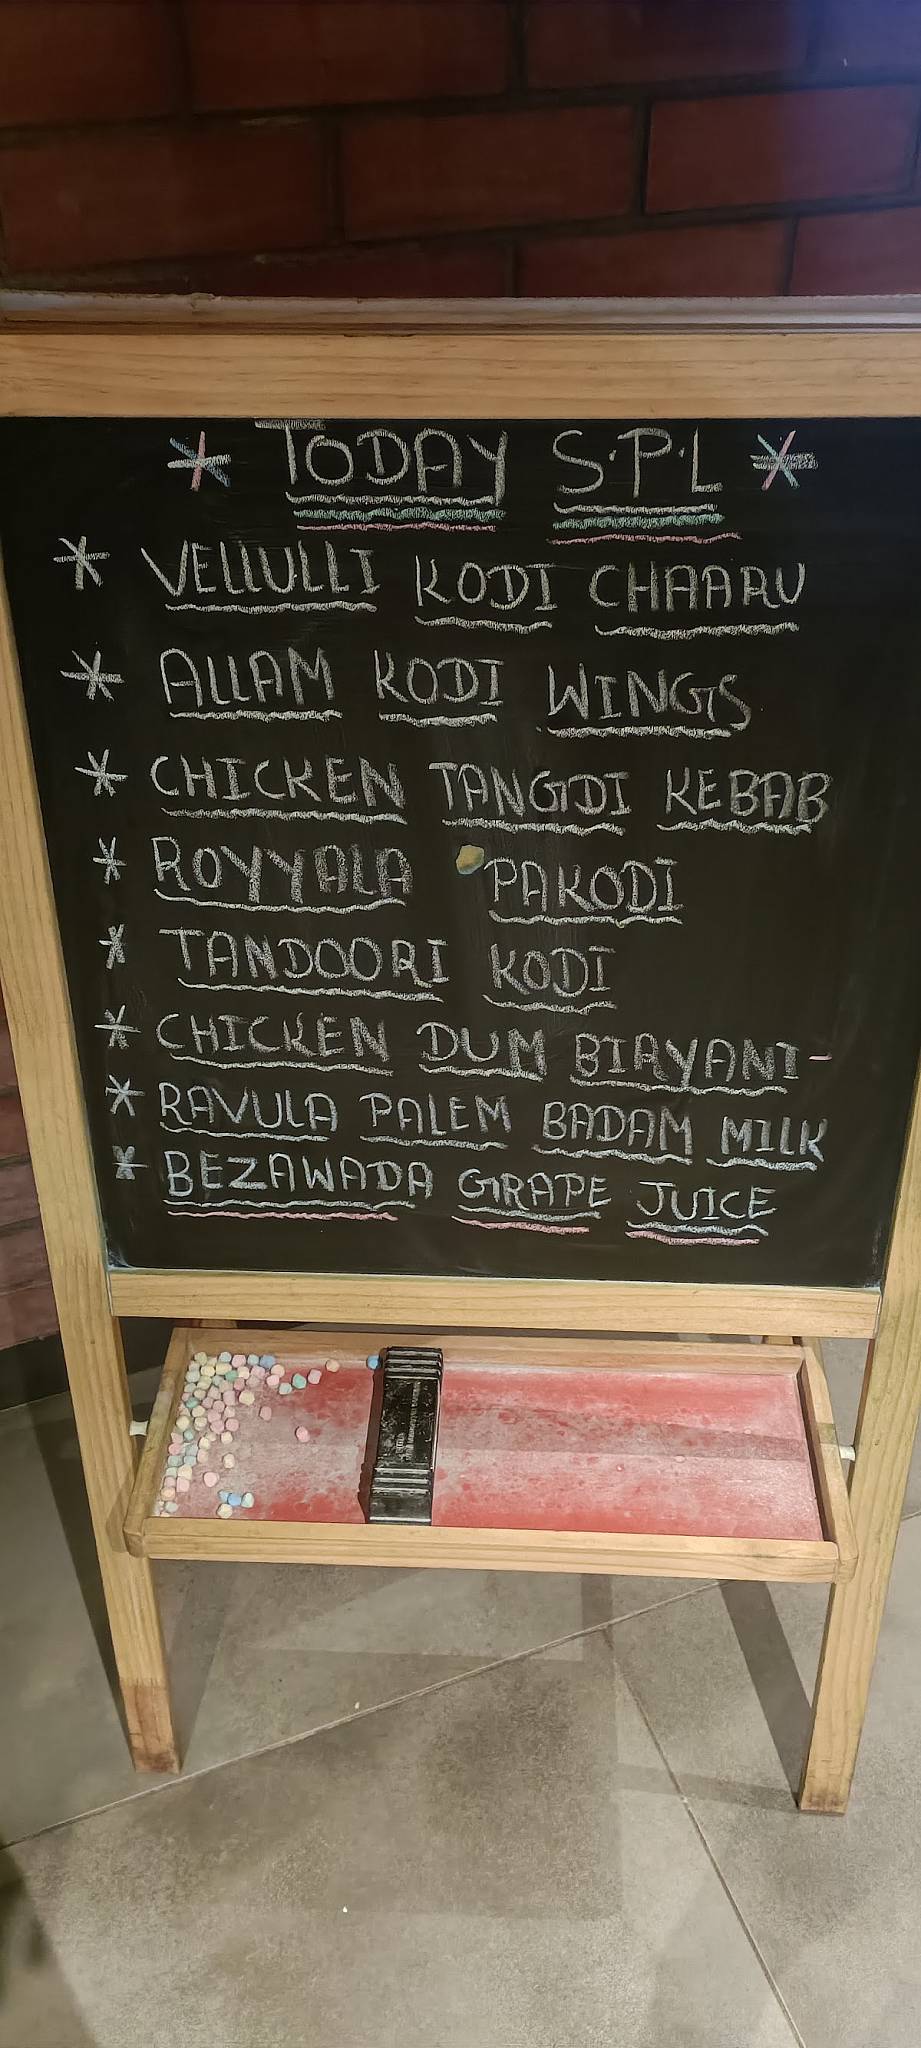 * TODAY S.P.L *
* VELLULLI KODI CHAARU
* ALLAM KODI WINGS
* CHICKEN TANGDI KEBAB
* ROYYALA PAKODI
* TANDOORI KODI
* CHICKEN DUM BIAYANI-
* RAVULA PALEM BADAM MILK
* BEZAWADA GRAPE JUICE